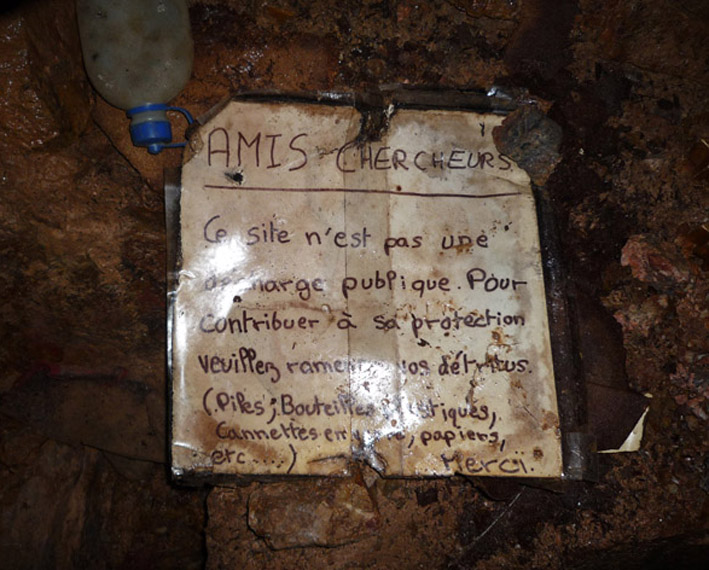 AMIS CHERCHEURS
Ce site n'est pas une
décharge publique. Pour
contribuer à sa protection
veuillez ramener vos détritus.
(Piles; Bouteilles plastiques,
Cannettes en, papiers,
etc....) Merci.